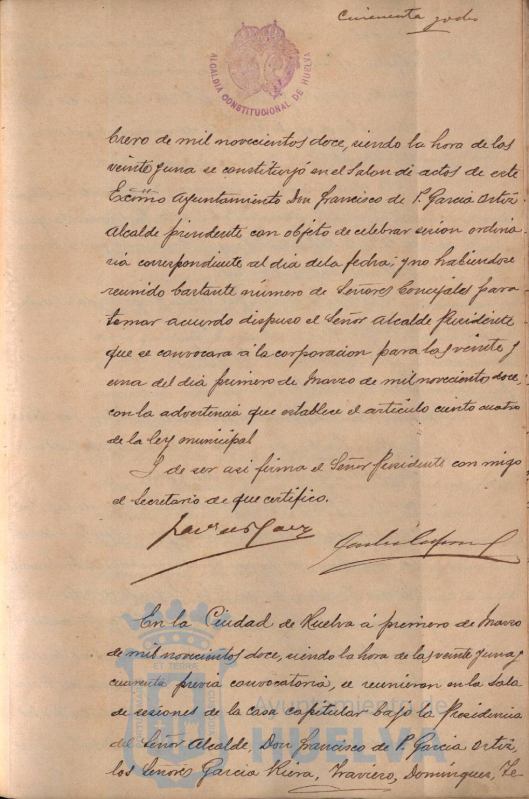 Cincuenta y ocho
ALCALDIA CONSTITUCIONAL DE HUELVA
brero de mil novecientos doce, siendo la hora de las
veinte y una se constituyó en el Salon de actos de este
Excmo Ayuntamiento Don Francisco de P. Garcia Ortiz
Alcalde presidente con objeto de celebrar sesion ordina
ria correspondiente al dia de la fecha; y no habiendose
reunido bastante número de Señores Concejales para
tomar acuerdo dispuso el Señor Alcalde Presidente
que se convocara á la corporacion para las veinte y
una del dia primero de Marzo de mil novecientos doce,
con la advertencia que establece el articulo ciento cuatro
de la ley municipal
Y de ser asi firma el Señor Presidente con migo
el Secretario de que certifico.
En la Ciudad de Huelva á primero de Marzo
de mil novecientos doce, siendo la hora de las veinte y una y
cuarenta previa convocatoria, se reunieron en la Sala
de sesiones de la casa capitular bajo la Presidencia
del Señor Alcalde, Don Francisco de P. Garcia Ortiz,
los Señores Garcia Riera, Traviero, Dominguez, Te-
ET TERRA
Ayuntamiento de
HUELVA